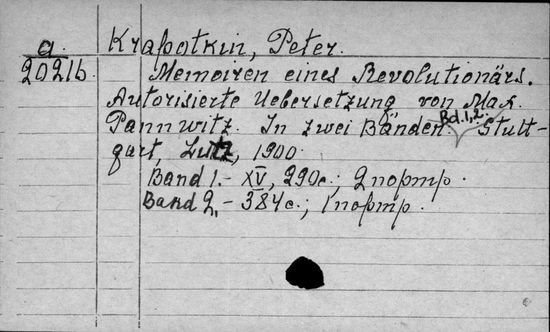 a.
20216
Krapotkin, Peter.
Memoiren eines Revolutionärs.
Autorisierte Uebersetzung von Max
Pannwitz. In zwei Bänden. Bd.1,2. Stutt-
gart, Lutz, 1900.
Band 1.- XV, 290с.; 2 портр.
Band 2.- 384с.; 1 портр.